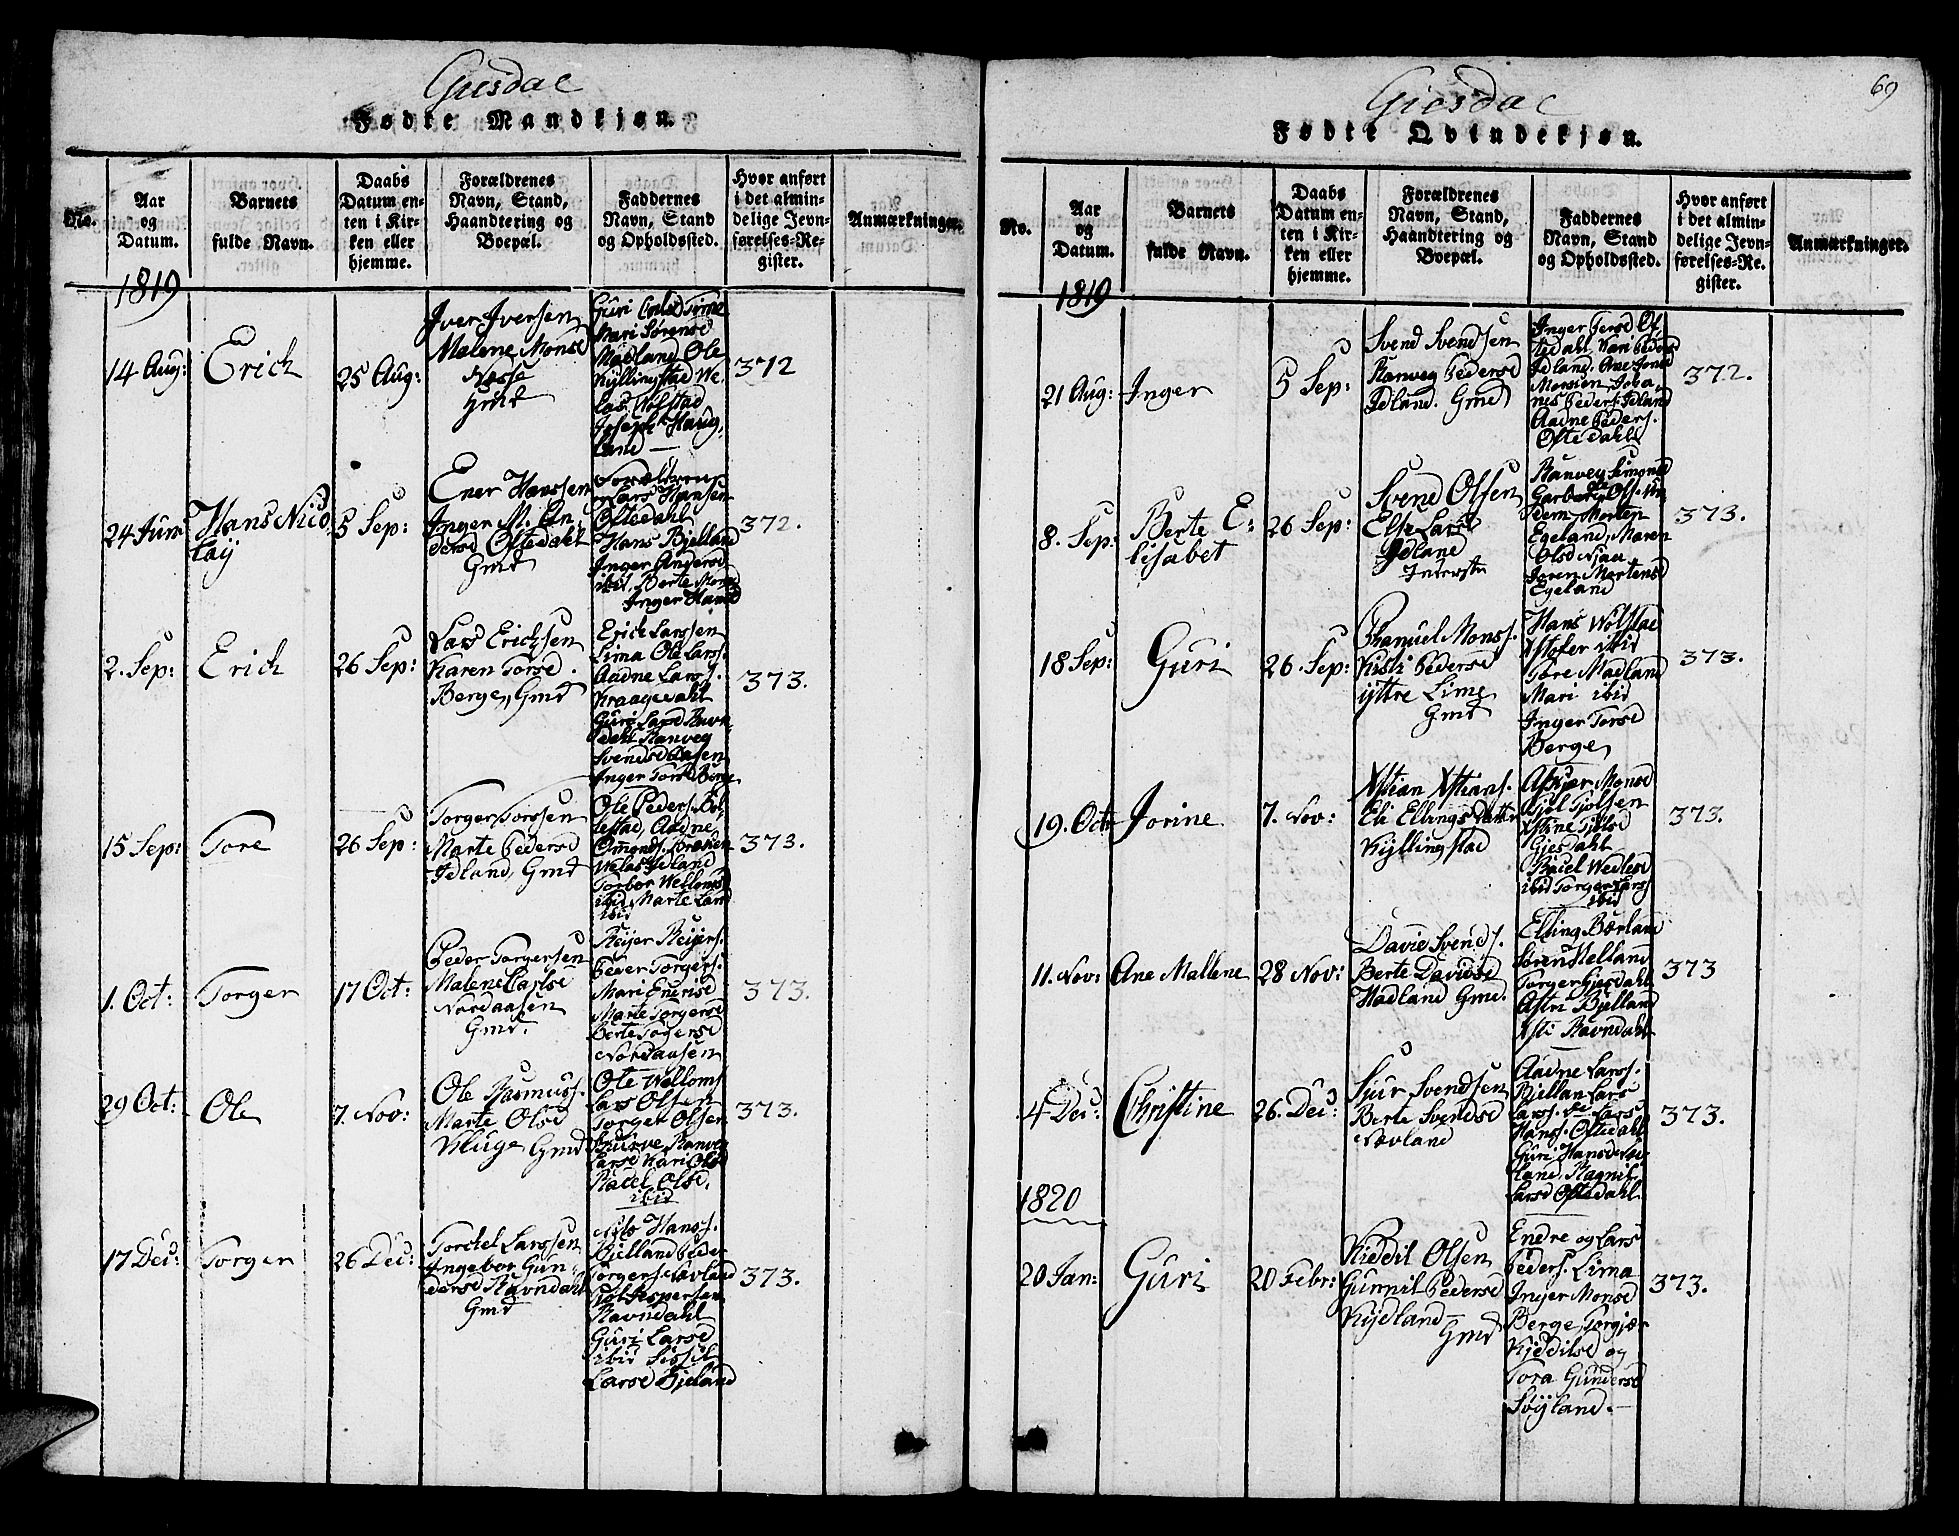 Giesdal
Fødte Mandkjøn.
No.
Aar
og
Datum.
Barnets
fulde Navn.
Daabs
Datum en-
ten i Kir-
ken eller
hjemme.
Forældrenes
Navn, Stand,
Haandtering og
Boepæl.
Faddernes
Navn, Stand
og Opholdssted.
Hvor anført
i det almin-
delige Jevn-
førelses-Re-
gister.
Anmærkninger.
1819
14 Aug:
Erich
25 Aug:
Iver Iversen
Malene Monsd
Næsse
Gmd
Guri
Mari Sørensd
Madland Ole
Kyllingstad We-
las Wølstad
Joseph Haug-
land
372
24 Juni
Hans Nico
laij
5 Sep:
Ener Hanssen
Inger M. An-
dersd Oftedahl
Gmd
Forældrene
Lars Hansen
Oftedahl
Hans Bjelland
Inger Andersd
ibid. Berte Mons
Inger Hansd
372.
2. Sep:
Erich
26 Sep:
Lars Erichsen
Karen Torsd.
Berge, Gmd
Erich Larssen
Lima Ole Lars.
Aadne Larss.
Kraagedahl
Guri Larsd Ravn-
dahl Ranveg
Svendsd
Inger Torsd Berge
373.
15 Sep:
Tore
26 Sep:
Torger Torssen
Marte Pedersd
Idland, Gmd
Ole Peders.
Aadne
Omonds.
Welas Idland
Torbor Welloms
ibid, Marte Lars
ibid
373.
1. Oct:
Torger
17 Oct:
Peder Torgersen
Malene Larsd
Nordaasen
Gmd.
Reijer Reijers.
Peder Torgers.
Mari
Marte Torgersd
Berte Torgersd
Nordaasen
373.
29 Oct:
Ole
7. Nov:
Ole Rasmuss.
Marte Olsd
Kluge Gmd
Ole Welloms
Lars Olsen
Torger Olsen
Ranveg
Larsd Kari Olsd
Rael Olsd.
ibid
373.
17 Dec:
Torger
26 Dec:
Torckel Larssen
Ingebor Gun-
dersd Ravndahl
Gmd
Nils Hanss.
Bjelland Peder
Torgers. Nævland
Jespersen
Ravndahl
Guri Larsd
ibid Sissil
Larsd Bjeland
373.
Giesdal
69
Fødte Qvindekjøn.
No.
Aar
og
Datum.
Barnets
fulde Navn.
Daabs
Datum en-
ten i Kir-
ken eller
hjemme.
Forældrenes
Navn, Stand,
Haandtering og
Boepæl.
Faddernes
Navn, Stand
og Opholdssted.
Hvor anført
i det almin-
delige Jevn-
førelses-Re-
gister.
Anmærkninger.
1819
21 Aug:
Inger
5 Sep:
Svend Svendsen
Ranveg Pedersd
Idland. Gmd
Inger Torsd Of-
tedahl, Kari Pedersd
Idland. Ane Jons
Morsien, Joha-
nes Peders. Idland
Aadne Peders.
Oftedahl
372.
8. Sep:
Berte E-
lisabet
26 Sep:
Svend Olsen
Else Larsd
Idland
Inderste
Ranveg Simonsd
Garberg, Ols.
Morten
Egeland, Maren
Olsd Njaa
Joren Mortensd
Egeland
373.
18 Sep:
Guri
26. Sep:
Thamuel Monss.
Kisti Pedersd
ijttre Lime
Gmd
Hans Wølstad
Xstofer ibid
Tore Madland
Mari ibid
Inger Torsd
Berge
373.
19. Oct:
Jorine
7. Nov:
Xstian Xstians.
Eli Ellings Datter
Kyllingstad
Monsd
Kiel Tiølsen
Xstine Tiølsd
Gjesdahl
Rael Wedlesd
ibid Torger Lars
ibid
373.
11. Nov:
Ane Mallene
28 Nov:
David Svends.
Berte Davidsd
Madland Gmd.
Elling Bærland
Søren Melland
Torger Gjesdahl
Astri Bjelland
Xsti Ravndahl
373
4 Dec:
Christine
26. Dec:
Sjur Svendsen
Berte Svendsd
Nævland
Aadne Larss.
Bjellan Lars
Larss. Lars
Hanss. Oftedahl
Guri Hansd
land, Ragnil
Larsd Oftedahl.
373.
1820
20 Jan:
Guri
20 Febr:
Kiddil Olsen
Gunnil Pedersd
Kydland
Gmd
Endre og Lars
Peders. Lima
Inger Monsd
Berge, Torgjær
Kjddilsd og
Tora Gundersd
Søyland.
373.